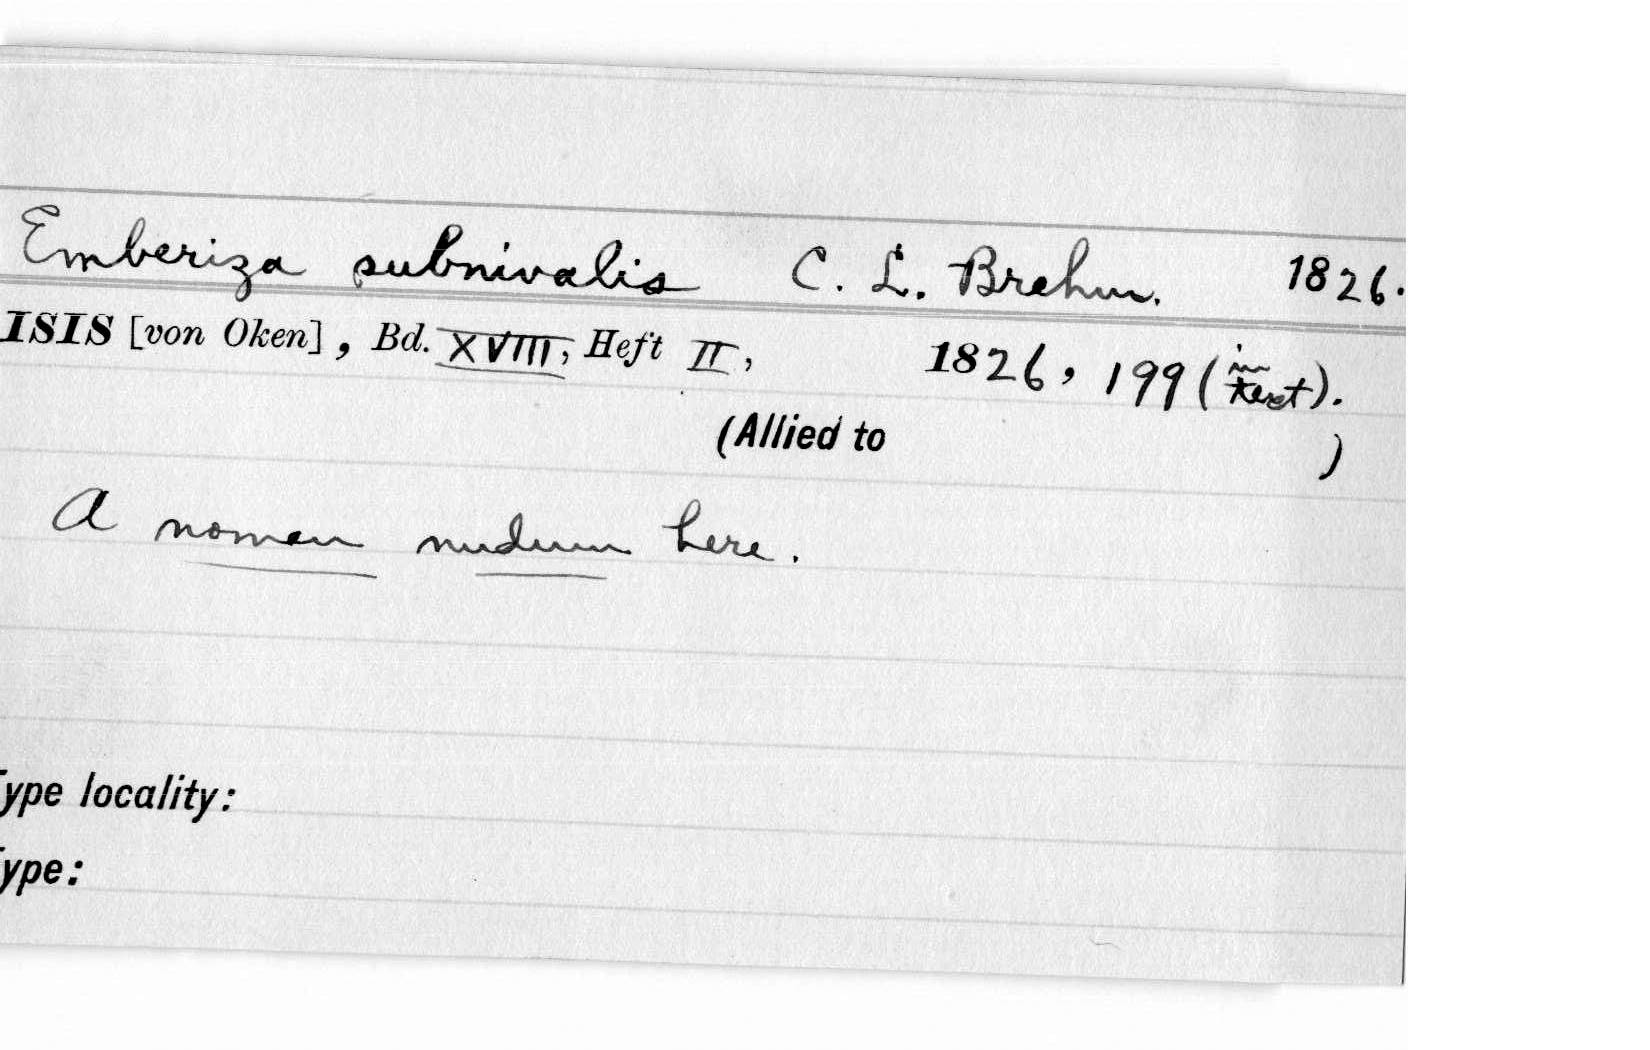 Emberiza subnivalis C. L. Brehm. 1826.
ISIS [von Oken], Bd. XVIII, Heft II, 1826, 199 (in text).
(Allied to )
A nomen nudum here.
ype locality:
ype: